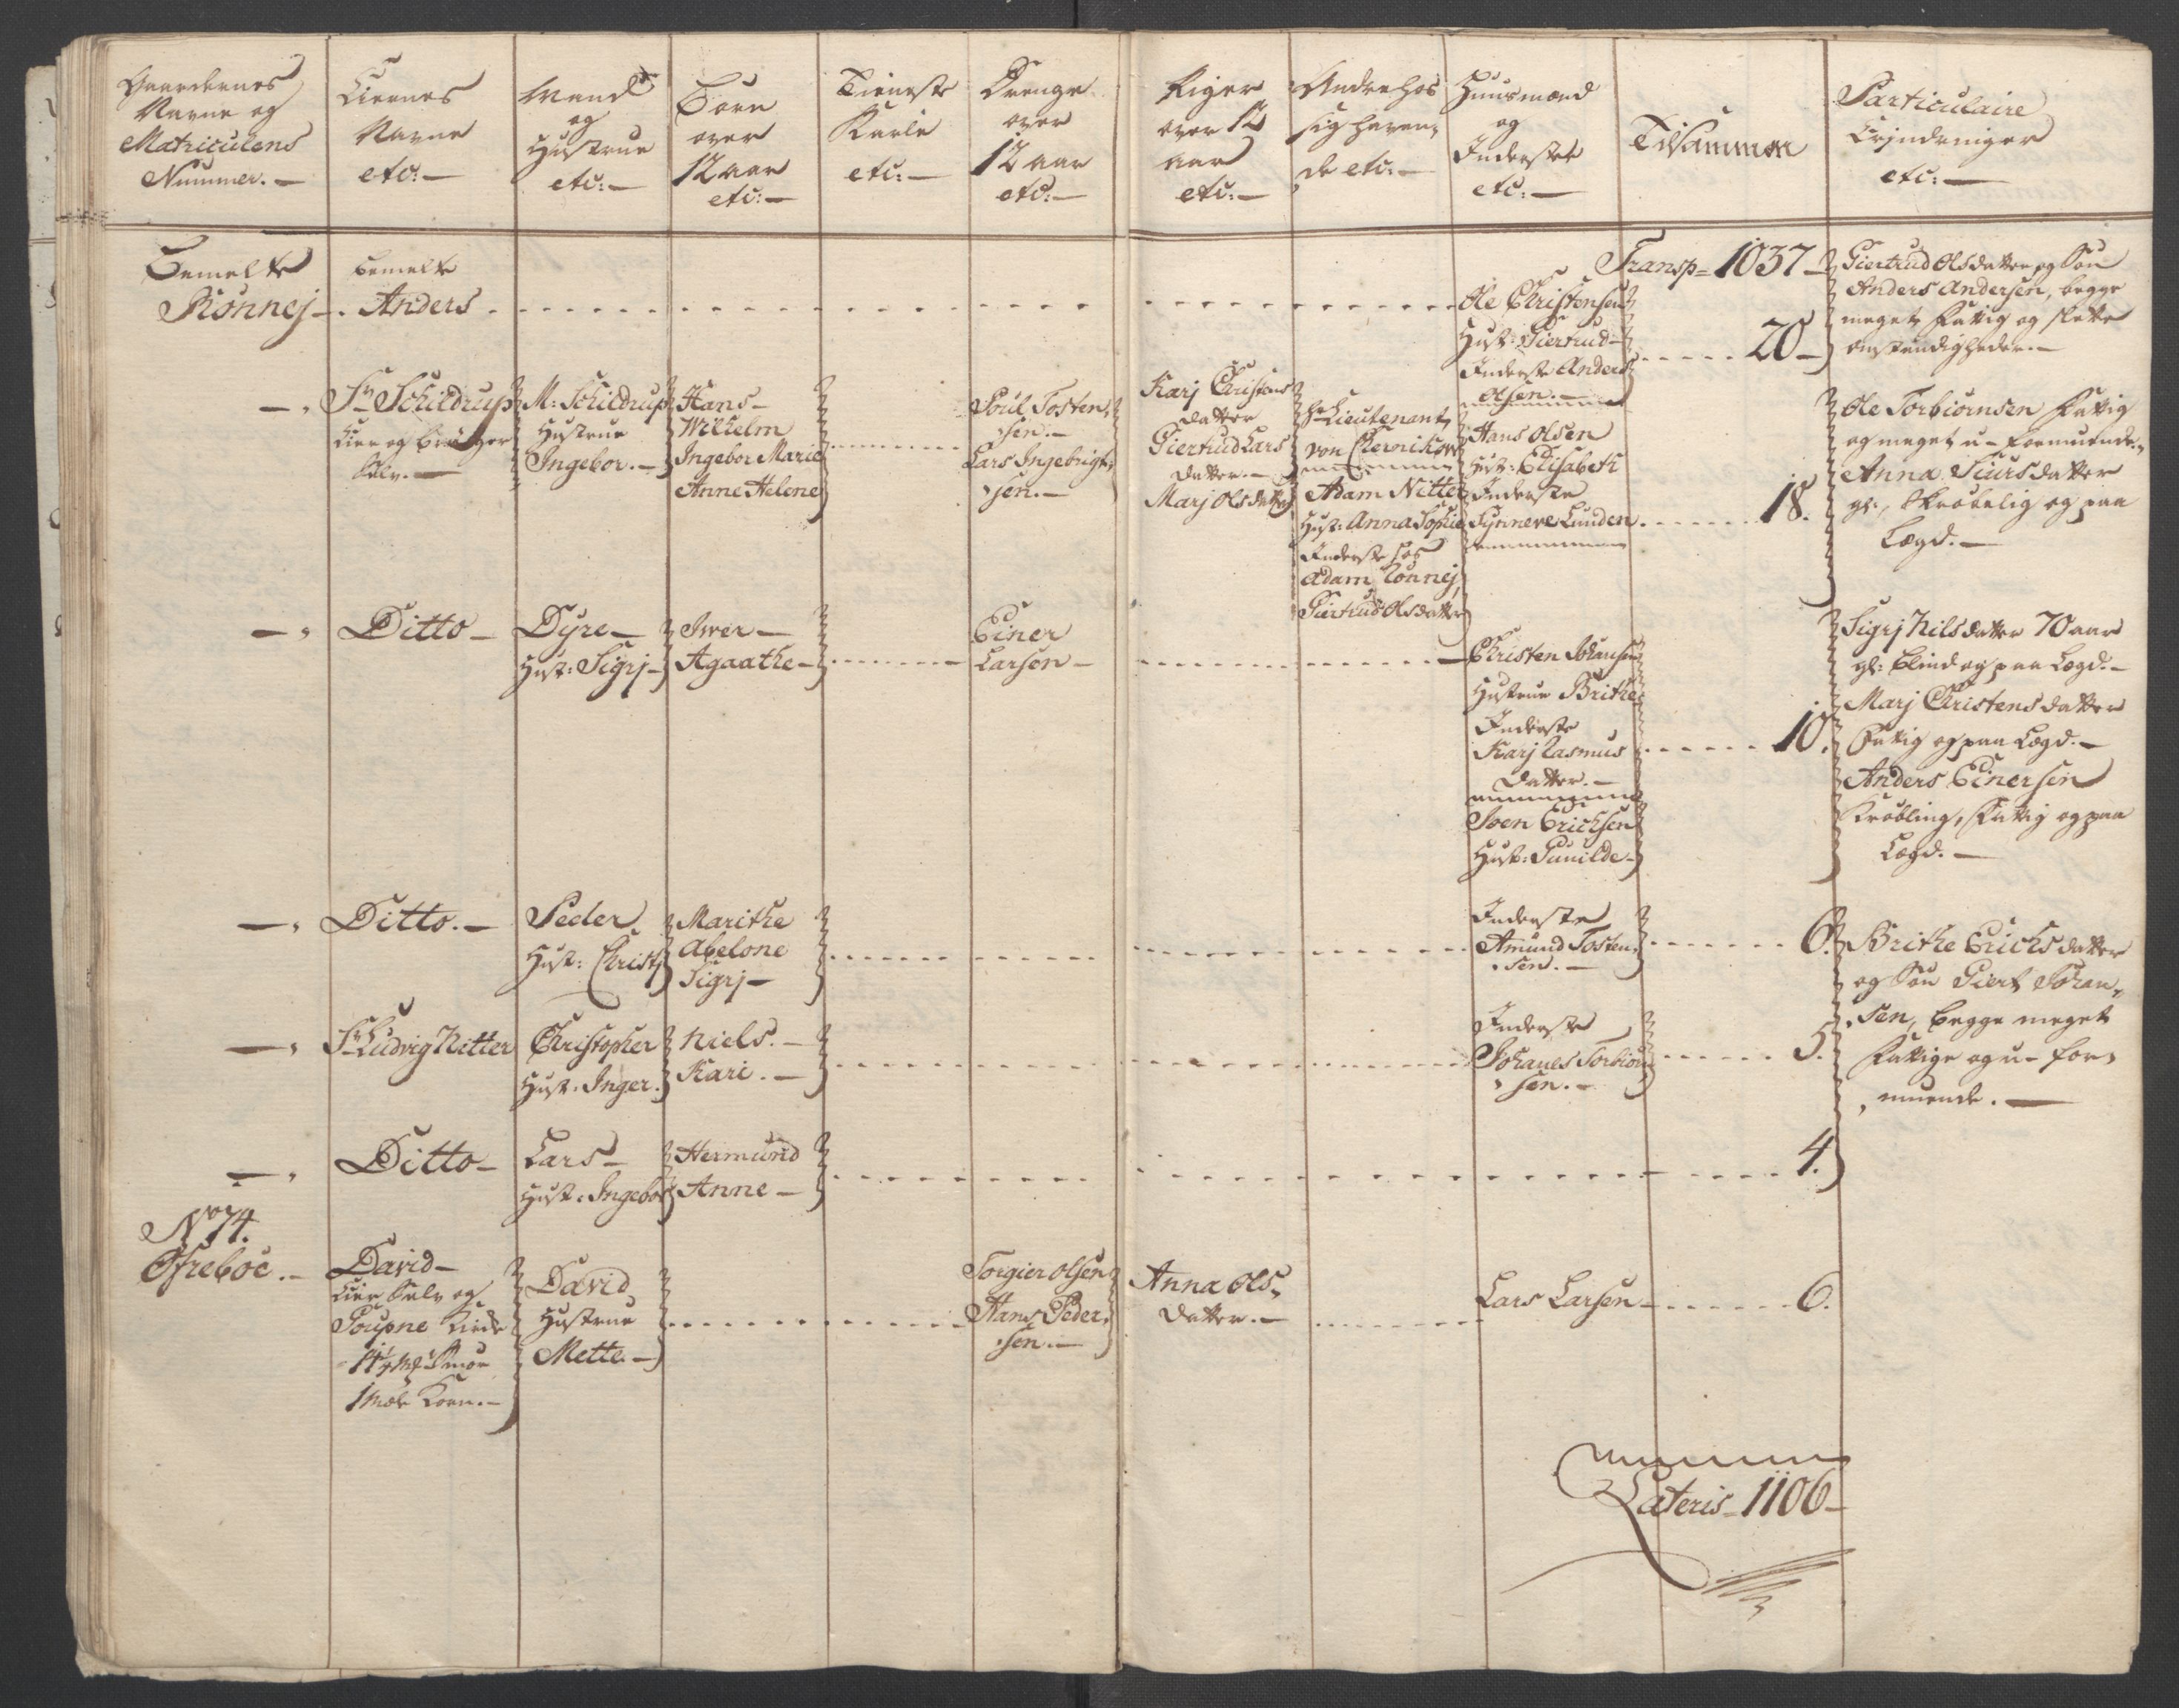 Gaardernes
Navne og
Matriculens
Nummer. —
Eiernes
Navne
etc: —
Mand
og
Hustrue
etc: —
Börn
over
12 aar
etc: —
Tieneste
Karle
etc: —
Drenge
over
12 aar
etc: —
Piger
over 12
aar
etc: —
Andre hos
sig haven„
de etc: —
Huusmænd
og
Inderster
etc: —
Tilsammen
Particulaire
Erindringer
etc: —
Bemelte
Rönnej —
bemelte
Anders
Ole Christensen
Hust: Giertrud —
Inderste Anders
Olsen. —
Transp = 1037 —
20 —
Giertrud Olsdatter og Sön
Anders Andersen, begge
meget Fattig og slette
omstendigheder. —
— „
Sr Schildrup
Eier og bruger
Selv. —
M: Schildrup
Hustrue
Ingebor. —
Hans —
Wilhelm
Ingebor Marie
Anne Helene
Poul Tosten„
„sen. —
Lars Ingebrigt„
„sen. —
Karj Christens
datter
Giertrud Lars
datter. —
Marj Olsdatter
Hr Lieutenant
von
Adam Nitter
Hust: Anna Sophie
Inderste hos
Adam Rönnej,
Giertrud Olsdatter
Hans Olsen
Hust: Elisabeth
Inderste
Synneve Lunden
18.
Ole Torbiörnsen Fattig
og meget u-formuende„
Anna Siursdatter
gl:, Skröbelig og paa
Lægd. —
— „
Ditto —
Dyre —
Hust: Sigrj —
Iwer —
Agaathe —
Einer
Larsen —
Christen Johansen
Hustrue Brithe
Inderste
Karj Rasmus
datter. —
Sven Erichsen
Hust: Gunilde —
10.
Sigrj Nilsdatter 70 aar
gl: blind og paa Lægd. —
Marj Christensdatter
Fattig og paa Lægd. —
Anders Einersen
Kröbling, Fattig og paa
Lægd. —
— „
Ditto. —
Peder
Hust: Christj
Marithe
Abelone
Sigrj —
Inderste
Amund Tosten„
„sen. —
6.
Brithe Erichsdatter
og Sön Giert Johan„
„sen, begge meget
Fattige og u-for„
„muende. —
— „
Sr Ludvig Nitter
Christopher
Hust: Inger.
Niels. —
Kari. —
Inderste
Johanes Torbiörn
„sen. —
5.
— „
Ditto —
Lars —
Hust: Ingebor
Hermund
Anne —
4.
No 74.
Öfreboe. —
David —
Eier Selv og
Kirke
Smör
1 Mæle Korn. —
David
Hustrue
Mette. —
Torgier Olsen
Hans Peder„
„sen. —
Anna Ols„
datter. —
Lars Larsen —
6.
Lateris = 1106 —